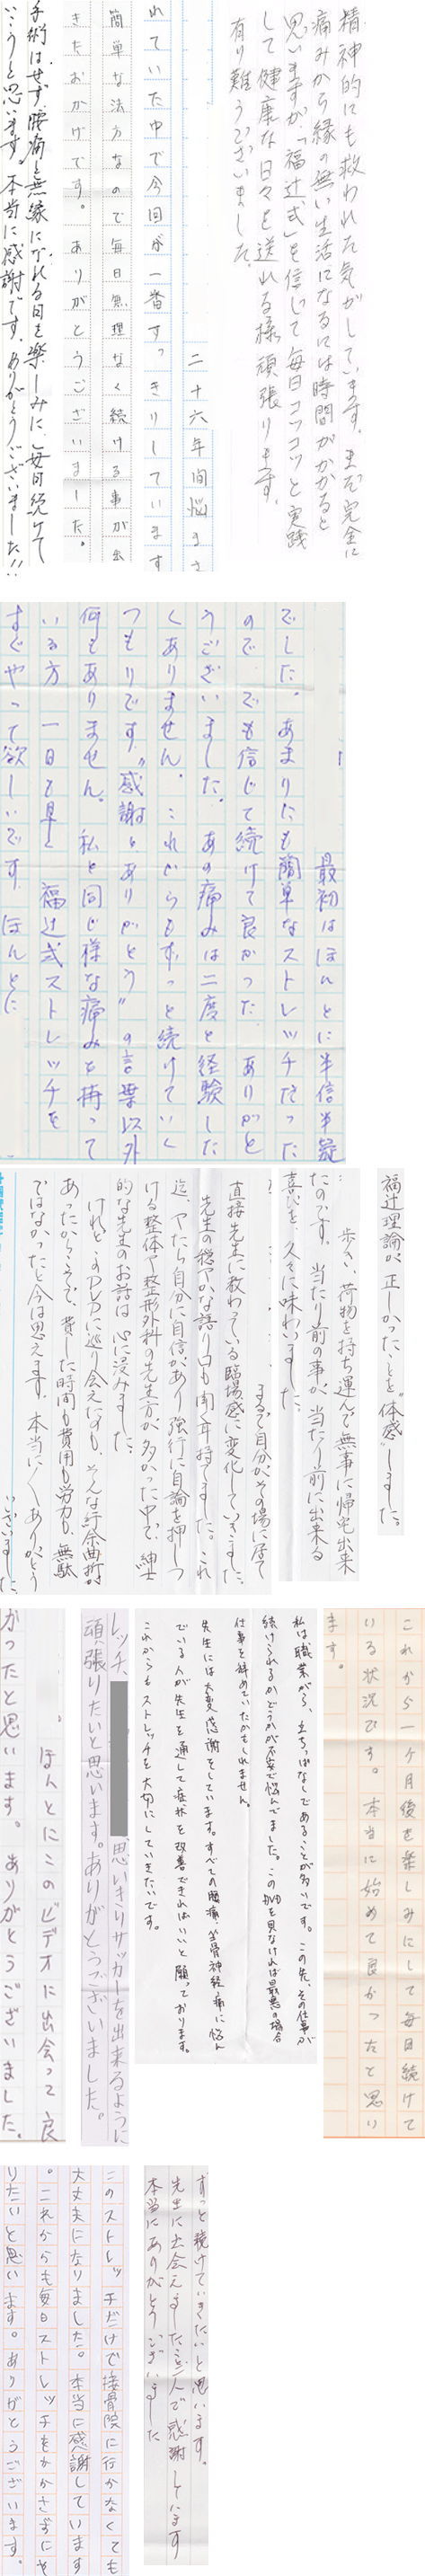 精神的にも救われた気がしています。まだ完全に
痛みから縁の無い生活になるには時間がかかると
思いますが、「福辻式」を信じて毎日コツコツと実践
して健康な日々を送れる様頑張ります。
有り難うございました。
二十六年間悩まさ
れていた中で今回が一番すっきりしています
簡単な方法なので毎日無理なく続ける事が出
きたおかげです。ありがとうございました。
手術はせず、腰痛と無縁になれる日を楽しみに、毎日続けて
いこうと思います。本当に感謝です。ありがとうございました!!
最初はほんとに半信半疑
でした。あまりにも簡単なストレッチだった
ので…でも信じて続けて良かった。ありがと
うございました。あの痛みは二度と経験した
くありません。これからもずっと続けていく
つもりです。“感謝とありがとう”の言葉以外
何もありません。私と同じ様な痛みを持って
いる方 一日も早く福辻式ストレッチを
すぐやって欲しいです。ほんとに
福辻理論が、正しかったことを“体感”しました。
歩き、荷物を持ち運んで無事に帰宅出来
たのです。当たり前の事が、当たり前に出来る
喜びを、久々に味わいました。
まるで自分がその場に居て
直接先生に教わっている臨場感に変化していきました。
先生の穏やかな語り口も、聞く耳持てました。これ
迄、やたら自分に自信があり強行に自論を押しつ
ける整体や整形外科の先生方が多かった中で、紳士
的な先生のお話は、心に浸みました。
けれど、このDVDに巡り会えたのも、そんな紆余曲折が
あったからこそで、費した時間も費用も労力も、無駄
ではなかったと今は思えます。本当に〱ありがとう
ございました。
これから一ヶ月後を楽しみにして毎日続けて
いる状況です。本当に始めて良かったと思い
ます。
私は職業がら、立ちっぱなしであることが多いです。この先、その仕事が
続けられるかどうかが不安で悩んでました。このDVDを見なければ最悪の場合
仕事を辞めていたかもしれません。
先生には大変感謝をしています。すべての腰痛、坐骨神経痛に悩ん
でいる人が先生を通して症状を改善できればいいと願っております。
これからもストレッチを大切にしていきたいです。
レッチ、
思いきりサッカーを出来るように
頑張りたいと思います。ありがとうございました。
ほんとにこのビデオに出会って良
かったと思います。ありがとうございました。
ずっと続けていきたいと思います。
先生に出会えましたご恩人で感謝しています
本当にありがとうございました
このストレッチだけで接骨院に行かなくても
大丈夫になりました。本当に感謝しています
。これからも毎日ストレッチをかかさずにや
りたいと思います。ありがとうございます。